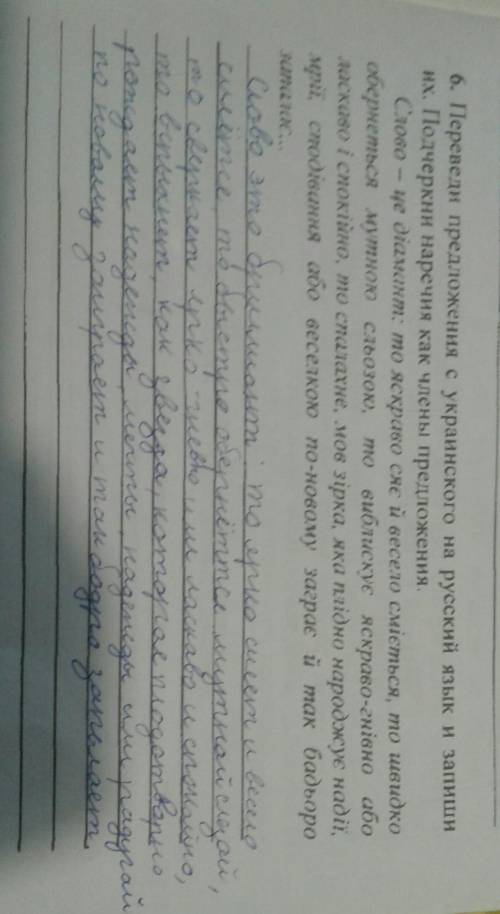 6. Переведи предложения с украинского на русский язык и запиши
их. Подчеркни наречия как члены предложения.
Слово – це діамант: то яскраво сяє й весело сміється, то швидко
обернеться мутною сльозою, то виблискує яскраво-гнівно або
ласкаво і спокійно, то спалахне, мов зірка, яка плідно народжує надії,
мрії, сподівання або веселкою по-новому заграє й так бадьоро
запалає...
Слово это бриллиант: то ярко сияет и весело
смиётся, то быстро обернётся мутной слезой,
то сверкает ярко-гневно или ласкаво и спокойно,
то вспыхнет, как звезда, которая плодотворно
рождает надежды, мечты, надежды или радугой
по новому заиграет и так бодро запылает